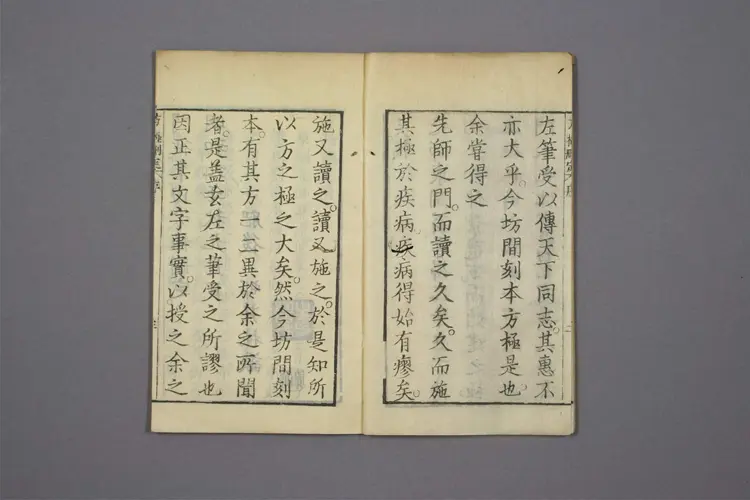 左筆受以傳天下同志。其惠不
亦大乎。今坊間刻本方極是也。
余嘗得之
先師之門。而讀之久矣。久而施
其極於疾病。疾病得始有瘳矣。
施又讀之。讀又施之。於是知所
以方之極之大矣。然今坊間刻
本。有其方一二異於余之所聞
者。是蓋玄左之筆受之所謬也
因正其文字事實。以授之余之